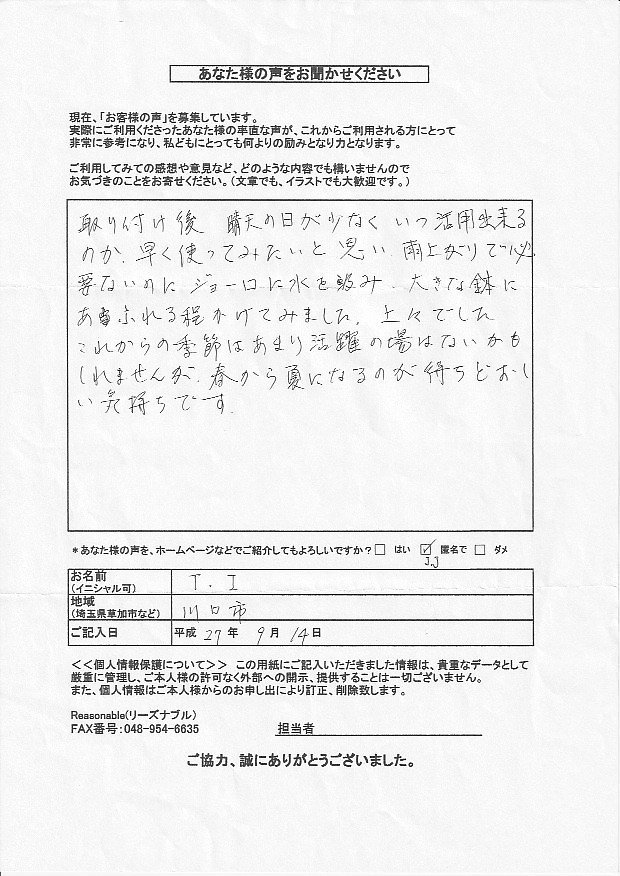 あなた様の声をお聞かせください
現在、「お客様の声」を募集しています。
実際にご利用くださったあなた様の率直な声が、これからご利用される方にとって
非常に参考になり、私どもにとっても何よりの励みとなり力となります。
ご利用してみての感想や意見など、どのような内容でも構いませんので
お気づきのことをお寄せください。（文章でも、イラストでも大歓迎です。）
取り付け後 晴天の日が少なく いつ活用出来る
のか、早く使ってみたいと思い 雨上がりで必
要ないのに ジョーロに水を汲み、大きな鉢に
あふれる程かけてみました。上々でした
これからの季節はあまり活躍の場はないかも
しれませんが、春から夏になるのが待ちどおし
い気持ちです。
＊あなた様の声を、ホームページなどでご紹介してもよろしいですか？□ はい ☑ 匿名で □ ダメ
J.J
お名前 T.I
（イニシャル可）
地域 川口市
（埼玉県草加市など）
ご記入日 平成 27 年 9 月 14 日
＜＜個人情報保護について＞＞ この用紙にご記入いただきました情報は、貴重なデータとして
厳重に管理し、ご本人様の許可なく外部への開示、提供することは一切ございません。
また、個人情報はご本人様からのお申し出により訂正、削除致します。
Reasonable(リーズナブル)
FAX番号：048-954-6635 担当者
ご協力、誠にありがとうございました。